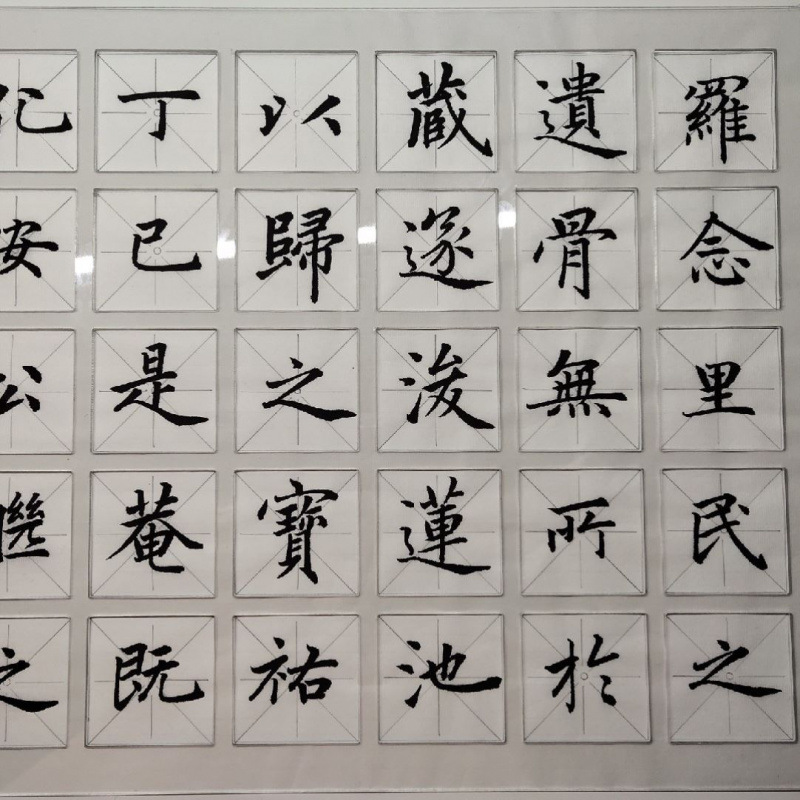 羅念里民之
遺骨無所於
藏遂浚蓮池
以歸之寶祐
丁巳是菴既
圮安公繼之